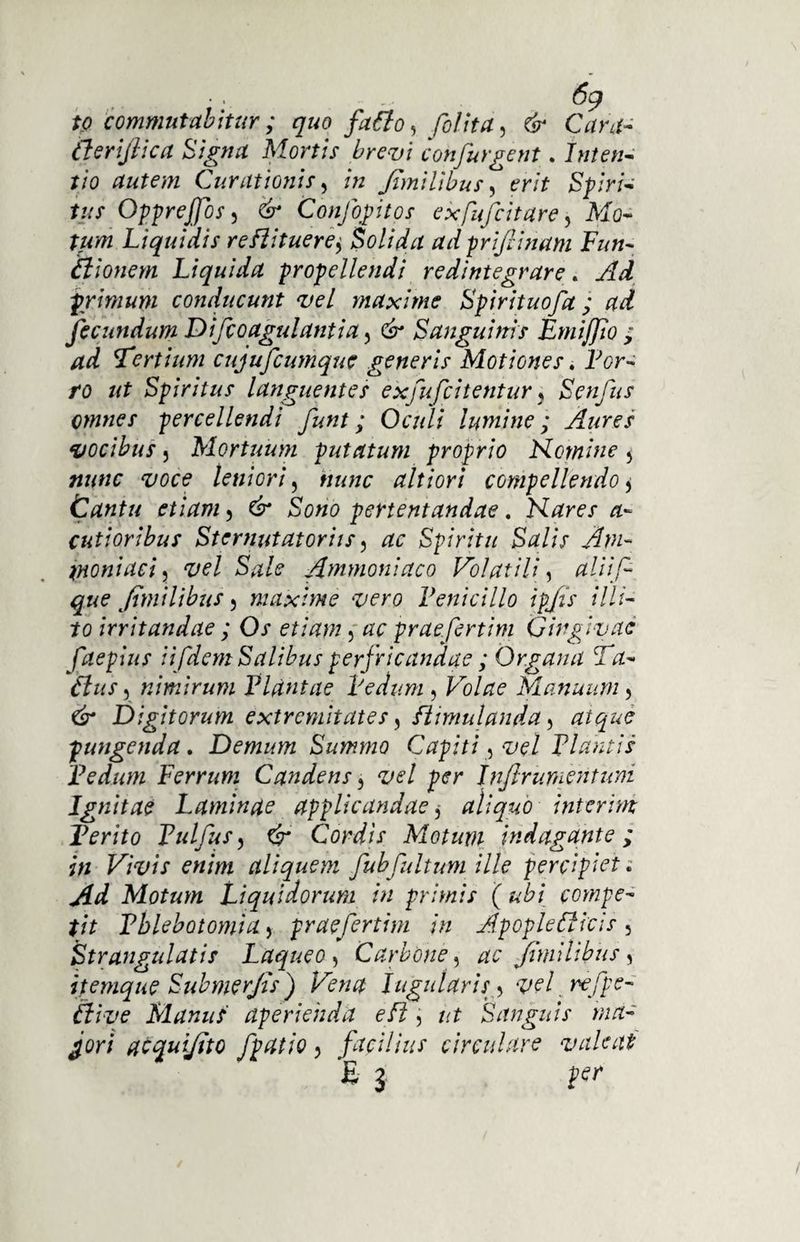 69
to commutabitur; quo facto, ſolita, & Cara-
cteriſtica Signa Mortis brevi conſurgent. Inten-
tio autem Curationis, in ſimilibus, erit Spiri-
tus Oppreſſos, & Conſopitos exſuſcitare, Mo-
tum Liquidis reſtituere, Solida ad priſtinam Fun-
ctionem Liquida propellendi redintegrare. Ad
primum conducunt vel maxime Spirituoſa; ad
ſecundum Diſcoagulantia, & Sanguinis Emiſſio;
ad Tertium cujuſcumque generis Motiones. Por-
ro ut Spiritus languentes exſuſcitentur, Senſus
omnes percellendi ſunt; Oculi lumine; Aures
vocibus, Mortuum putatum proprio Nomine,
nunc voce leniori, nunc altiori compellendo,
Cantu etiam, & Sono pertentandae. Nares a-
cutioribus Sternutatoriis, ac Spiritu Salis Am-
moniaci, vel Sale Ammoniaco Volatili, aliiſ-
que ſimilibus, maxime vero Penicillo ipſis illi-
to irritandae; Os etiam, ac praeſertim Gingivae
ſaepius iiſdem Salibus perfricandae; Organa Ta-
ctus, nimirum Plantae Pedum, Volae Manuum,
& Digitorum extremitates, ſtimulanda, atque
pungenda. Demum Summo Capiti, vel Plantis
Pedum Ferrum Candens, vel per Inſtrumentum
Ignitae Laminae applicandae, aliquo interim
Perito Pulſus, & Cordis Motum indagante;
in Vivis enim aliquem ſubſultum ille percipiet.
Ad Motum Liquidorum in primis (ubi compe-
tit Phlebotomia, praeſertim in Apoplecticis,
Strangulatis Laqueo, Carbone, ac ſimilibus,
itemque Submerſis) Vena Iugularis, vel reſpe-
ctive Manus aperienda eſt, ut Sanguis ma-
jori acquiſito ſpatio, facilius circulare valeat
E 3 per